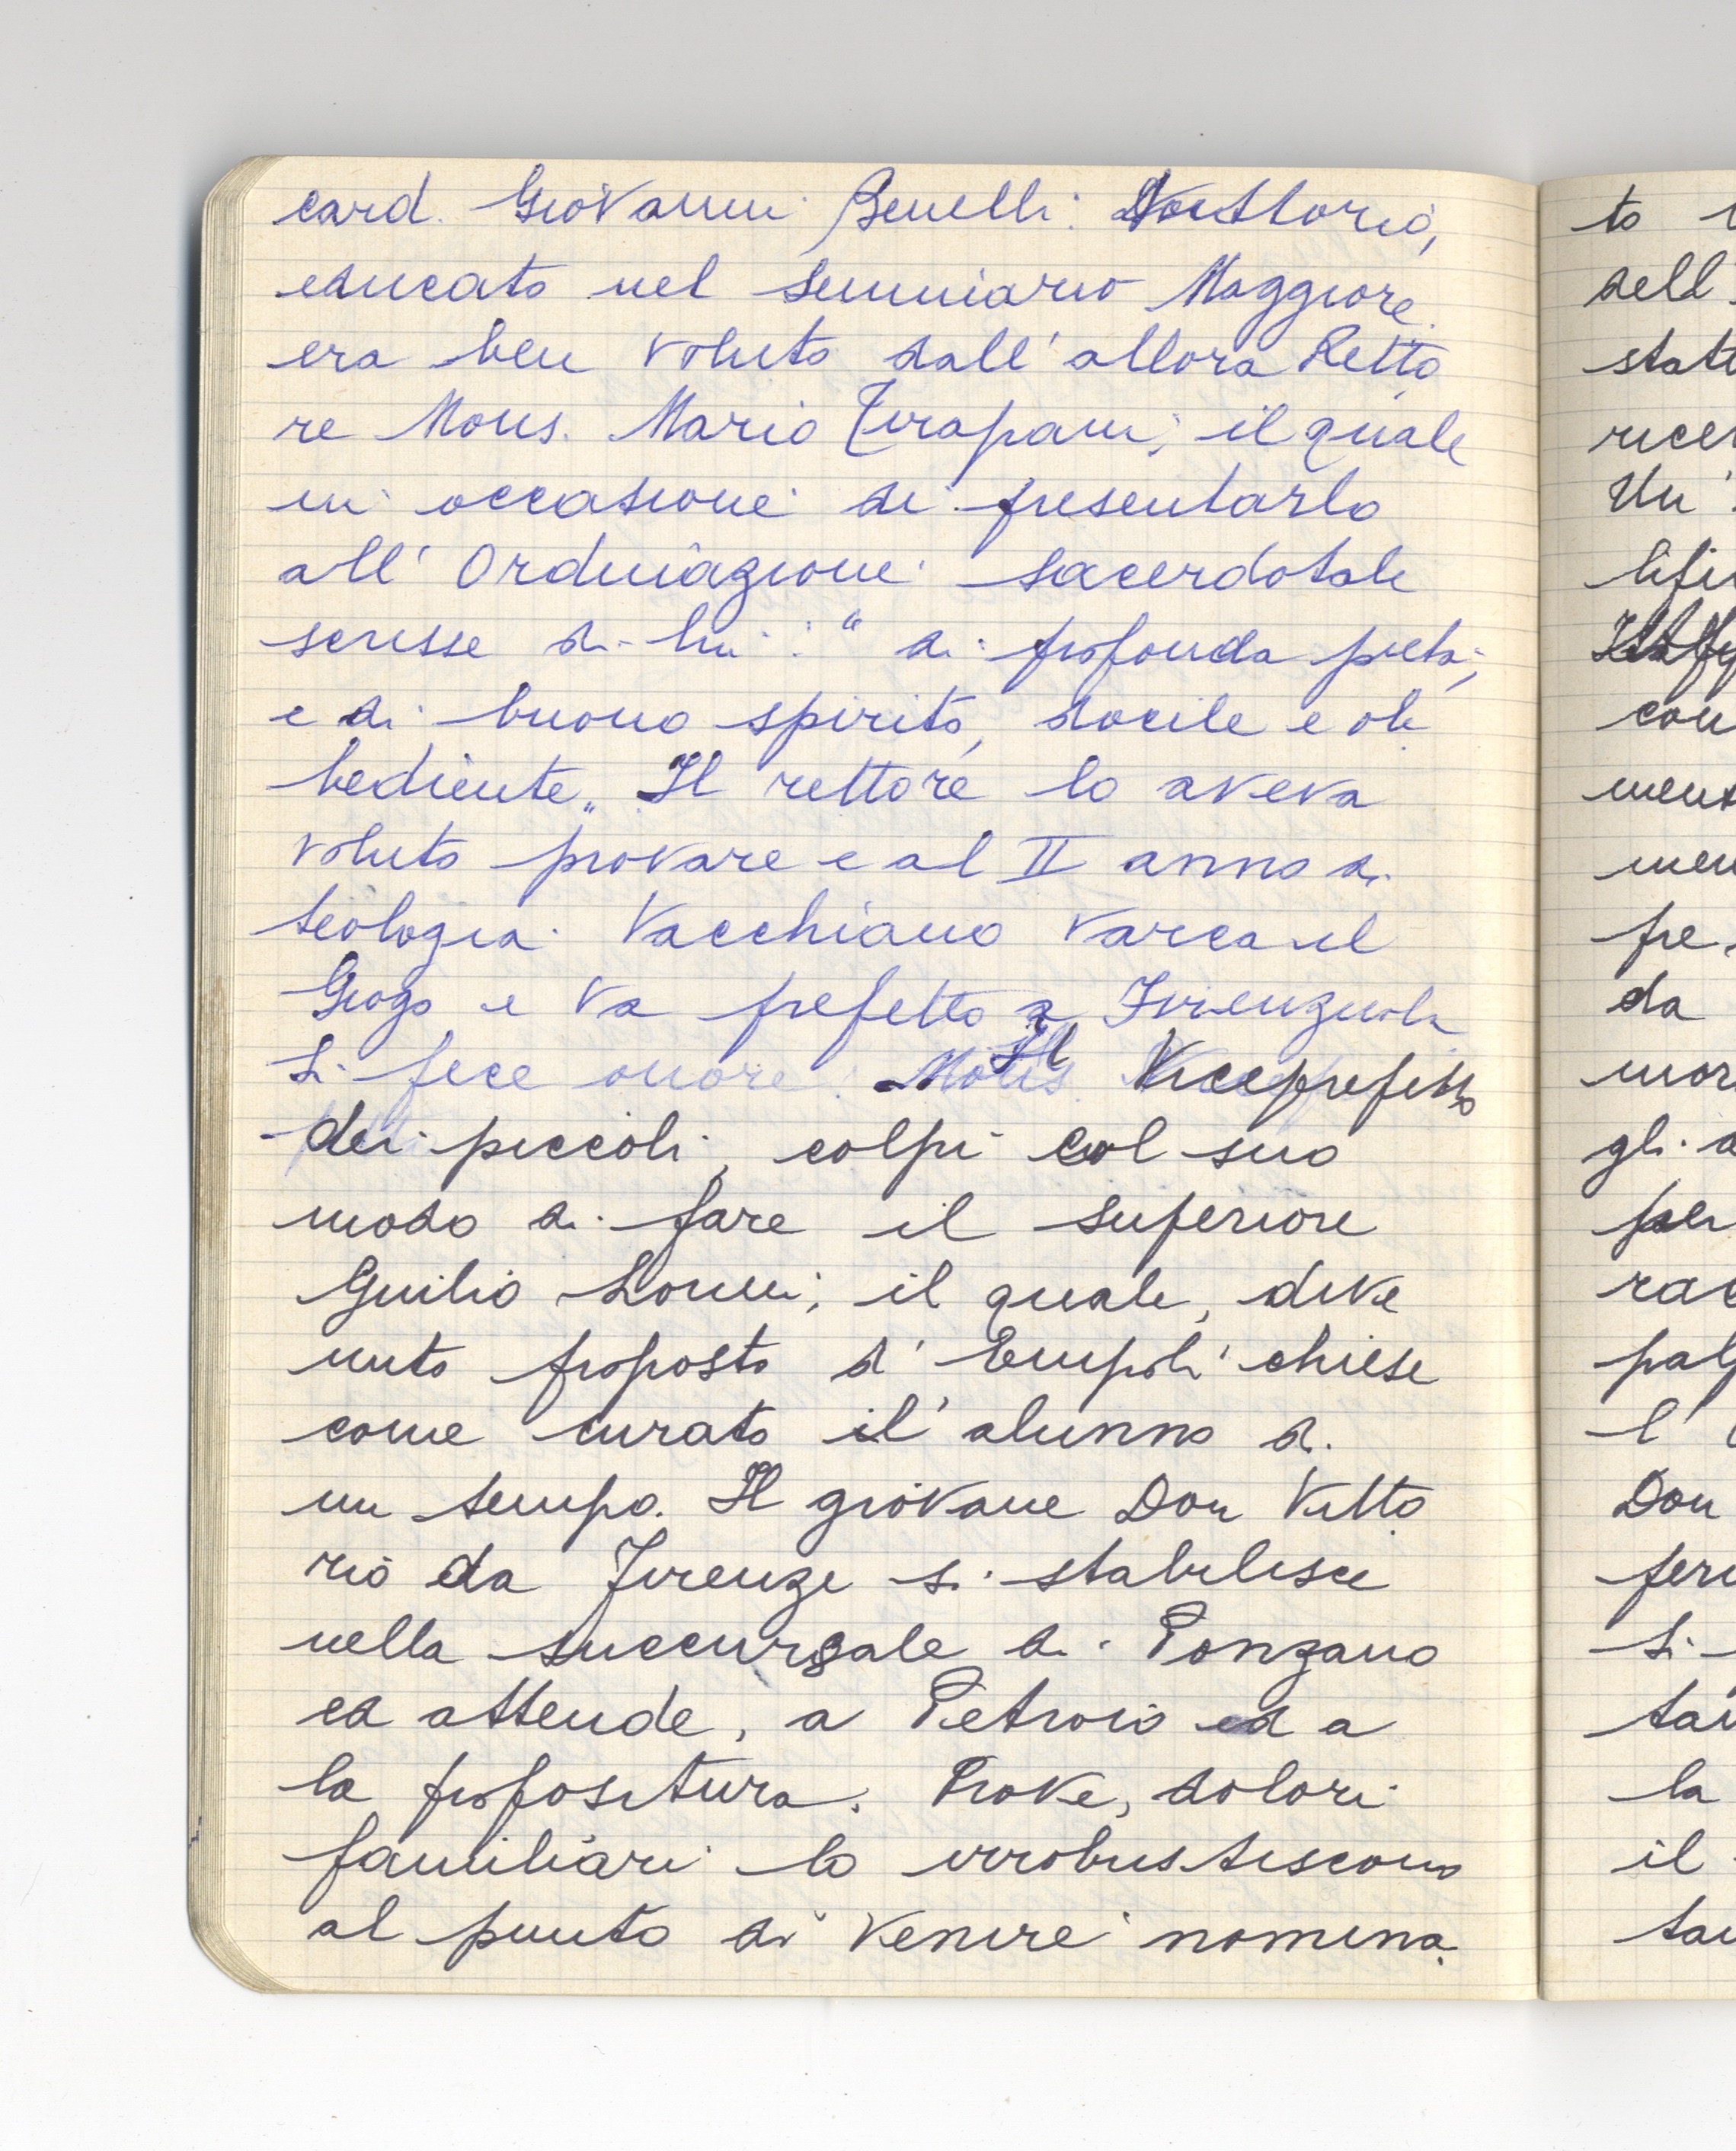 card. Giovanni Benelli. Vittorio,
educato nel Seminario Maggiore
era ben voluto dall'allora Retto
re Mons. Mario Tirapani, il quale
in occasione di presentarlo
all'Ordinazione sacerdotale
scrisse di lui: "di profonda pietà,
e di buono spirito, docile e ob
bediente„ Il rettore lo aveva
voluto provare e al II anno di
teologia Vacchiano varca il
Giogo e va prefetto a Firenzuola
Si fece onore. Il Viceprefetto
dei piccoli, colpì col suo
modo di fare il superiore
Giulio Lorini, il quale, dive
nuto proposto d'Empoli chiese
come curato il alunno di
un tempo. Il giovane Don Vitto
rio da Firenze si stabilisce
nella succursale di Ponzano
ed attende, a Petroio ed a
la propositura. Prove, dolori
familiari lo irrobustiscono
al punto di venire nomina
to
dell'
con
da
gli
per
l'
Don
Si
la
il